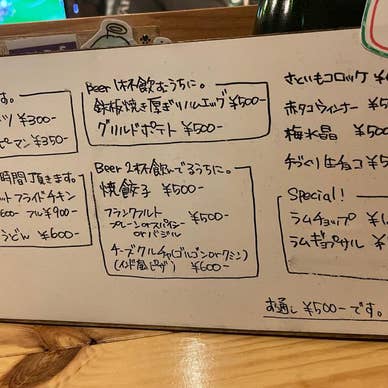 す。
ツ ¥300-
ピーマン ¥350-
時間頂きます。
ットフライドチキン
600- フル¥900-
うどん ¥600-
Beer 1杯飲むうちに。
鉄板焼き厚ぎりハムエッグ ¥500-
グリルドポテト ¥500-
Beer 2杯飲んでるうちに。
焼餃子 ¥500-
フランクフルト ¥500-
プレーン or スパイシー
or バジル
チーズクルチャ(ゴルゴン or クミン)
(インド風ピザ) ¥600-
さといもコロッケ
赤タコウインナー ¥5
梅水晶 ¥
手づくり生チョコ ¥
Special!
ラムチョップ ¥1
ラムギョプサル ¥1
お通し ¥500-です。